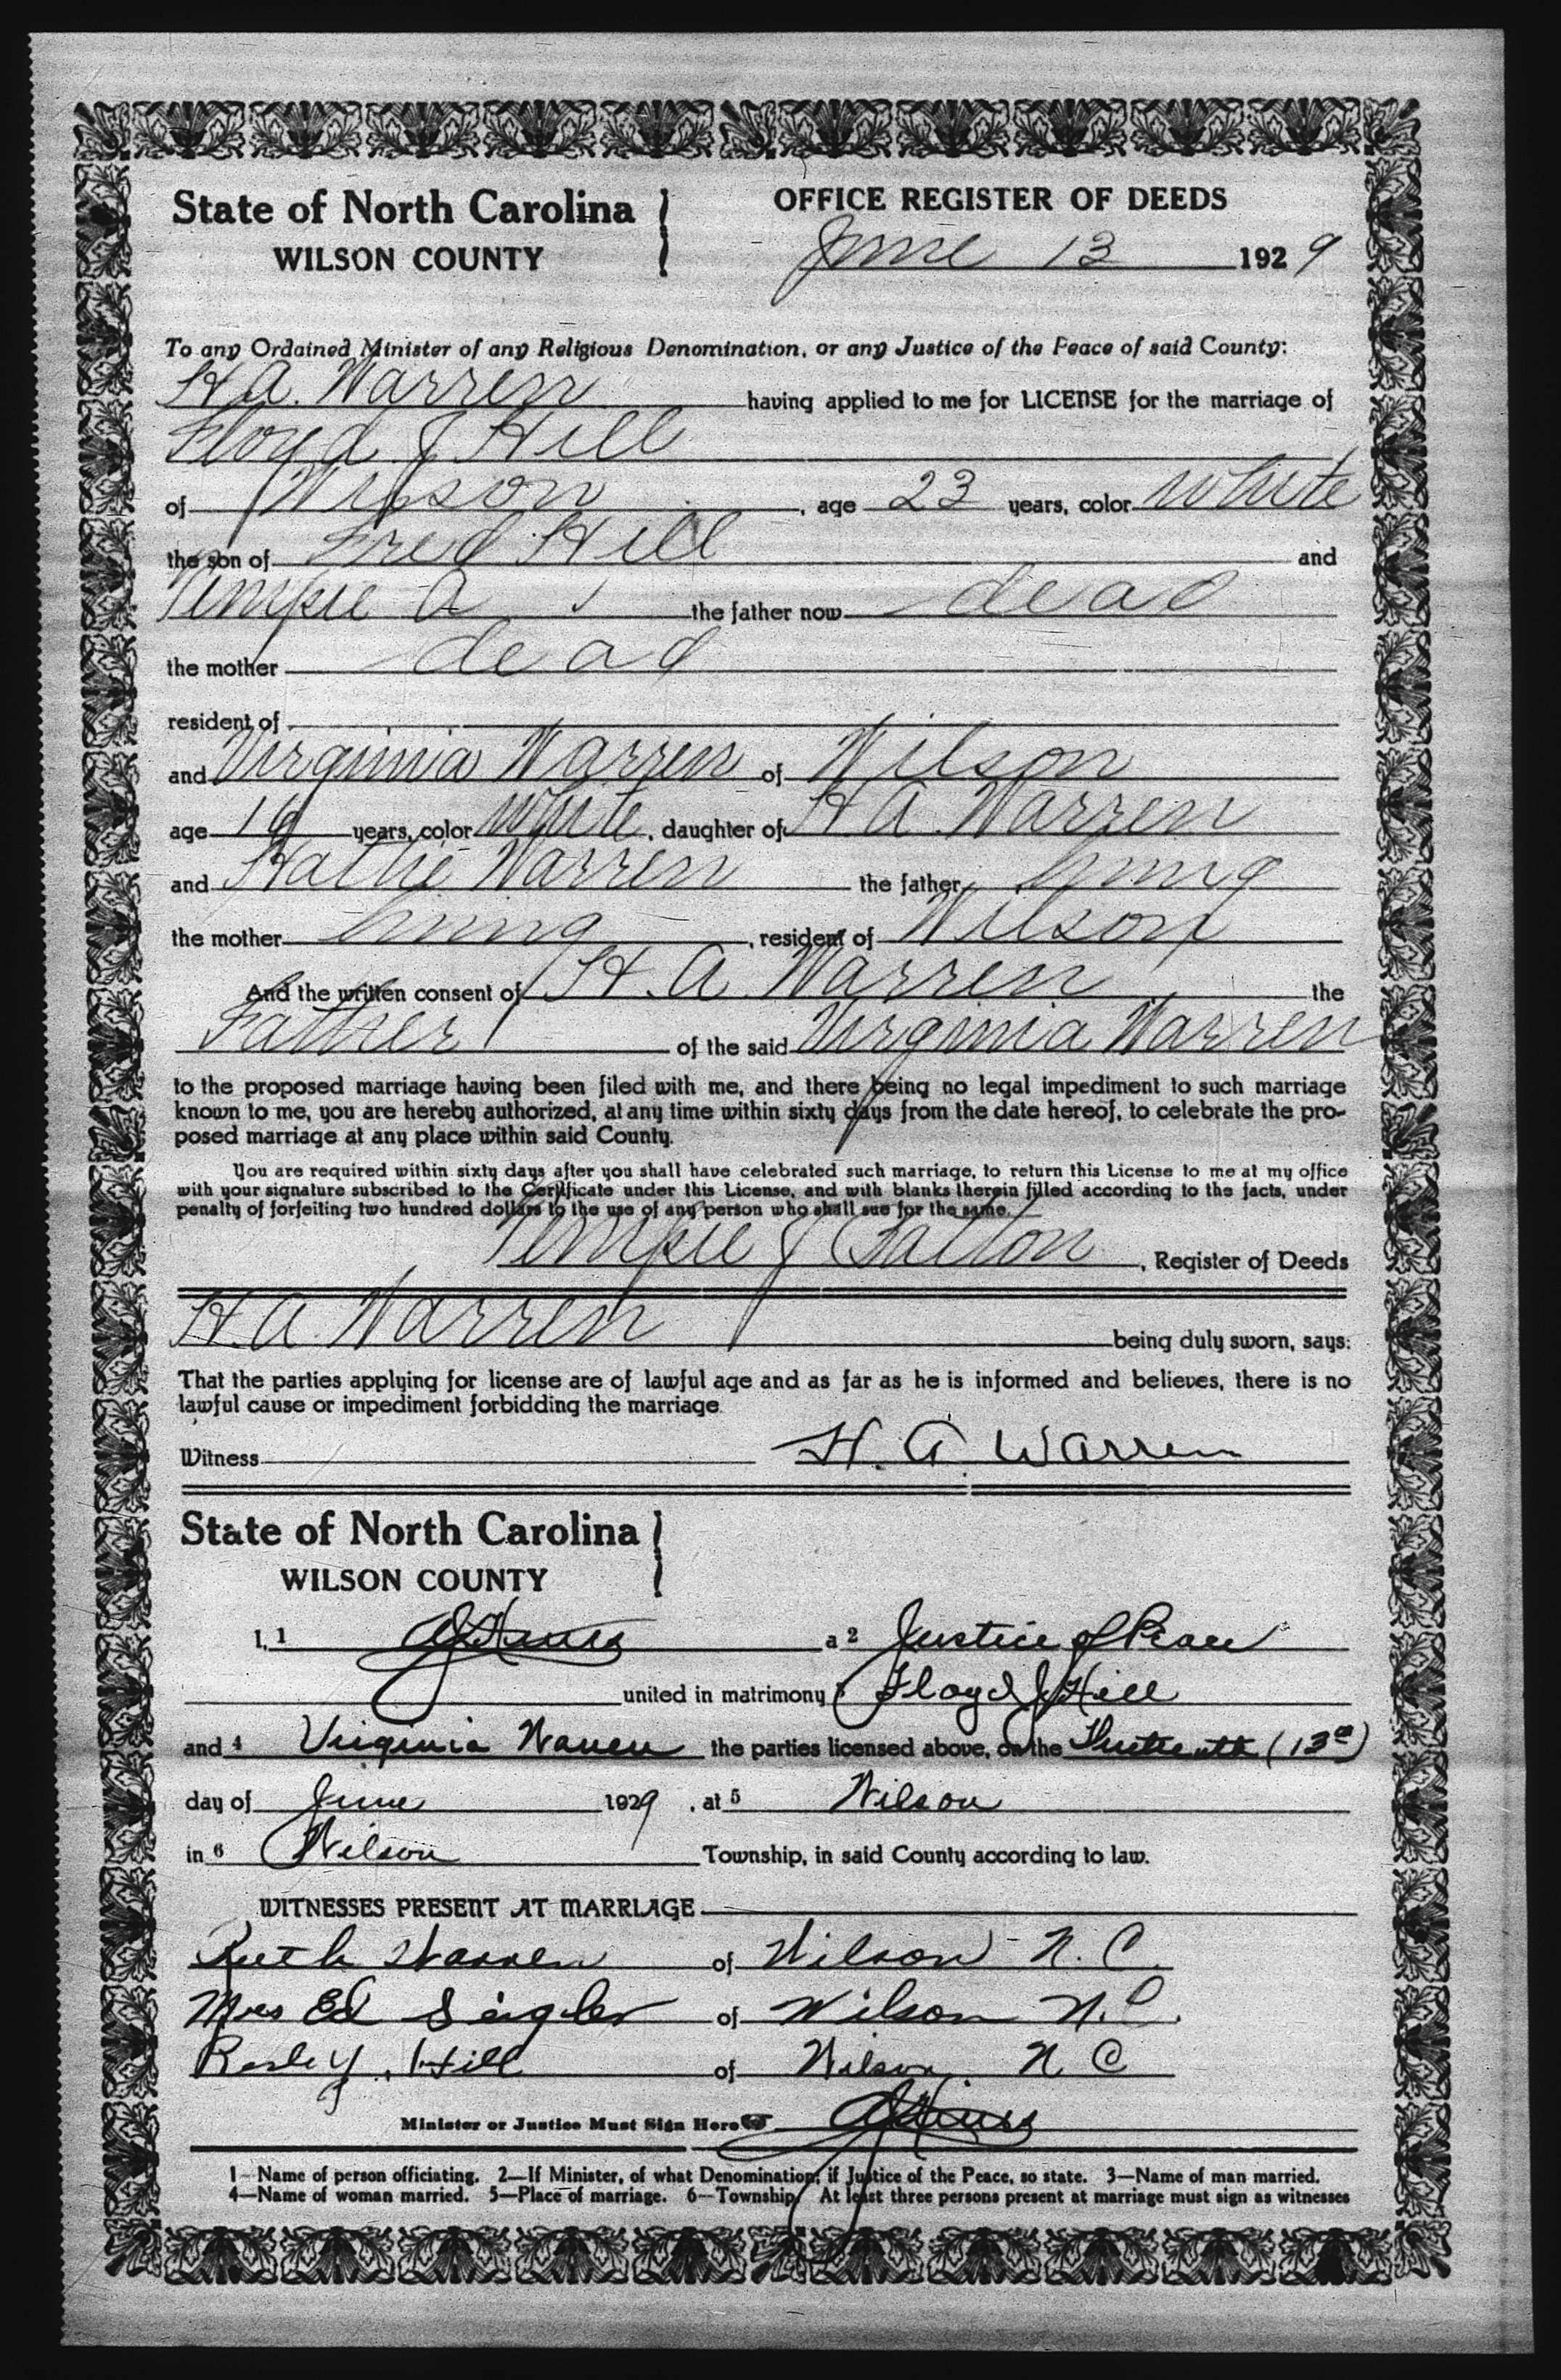 State of North Carolina
WILSON COUNTY
OFFICE REGISTER OF DEEDS
June 13 1929
To any Ordained Minister of any Religious Denomination, or any Justice of the Peace of said County:
H A. Warren having applied to me for LICENSE for the marriage of
Floyd J Hill
of Wilson, age 23 years, color White
the son of Fred Hill and
Tempie A the father now dead
the mother dead
resident of
and Virginia Warren of Wilson
age years, color White, daughter of H A. Warren
and Hattie Warren the father living
the mother living, resident of Wilson
And the written consent of H. A Warren the
Father of the said Virginia Warren
to the proposed marriage having been filed with me, and there being no legal impediment to such marriage
known to me, you are hereby authorized, at any time within sixty days from the date hereof, to celebrate the pro-
posed marriage at any place within said County.
You are required within sixty days after you shall have celebrated such marriage, to return this License to me at my office
with your signature subscribed to the Certificate under this License, and with blanks therein filled according to the facts, under
penalty of forfeiting two hundred dollars to the use of any person who shall sue for the same.
Tempie J , Register of Deeds
H. A. Warren being duly sworn, says:
That the parties applying for license are of lawful age and as far as he is informed and believes, there is no
lawful cause or impediment forbidding the marriage.
Witness H. A. Warren
State of North Carolina
WILSON COUNTY
I, 1 a 2 Justice of Peace
united in matrimony 3 Floyd J Hill
and 4 Virginia Warren the parties licensed above, on the Thirteenth (13th)
day of June 1929, at 5 Wilson
in 6 Wilson Township, in said County according to law.
WITNESSES PRESENT AT MARRIAGE
Ruth Warren of Wilson N. C.
Mrs Ed Seigler of Wilson N. C.
Hill of Wilson, N C
Minister or Justice Must Sign Here
1—Name of person officiating. 2—If Minister, of what Denomination; if Justice of the Peace, so state. 3—Name of man married.
4—Name of woman married. 5—Place of marriage. 6—Township. At least three persons present at marriage must sign as witnesses